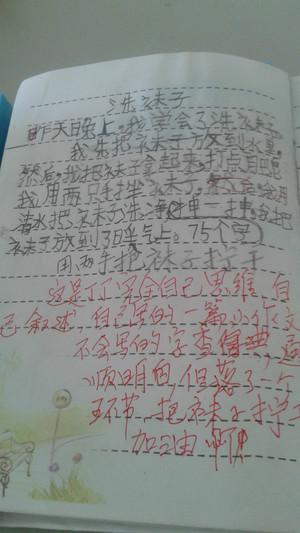 洗袜子
昨天晚上,我学会了洗袜子。
我先把袜子放到水里。
然后,我把袜子拿起来,打点肥皂
我用两只手搓袜子。最后,我用
清水把袜子洗净,抻一抻,我把
袜子放到了暖气上。75个字
用两手把袜子拧干
这是丁丁完全自己思维 自
己叙述,自己写的一篇小作文
不会写的字查借典,还
顺明的,但落了一个
环节,把袜子拧干
加油啊